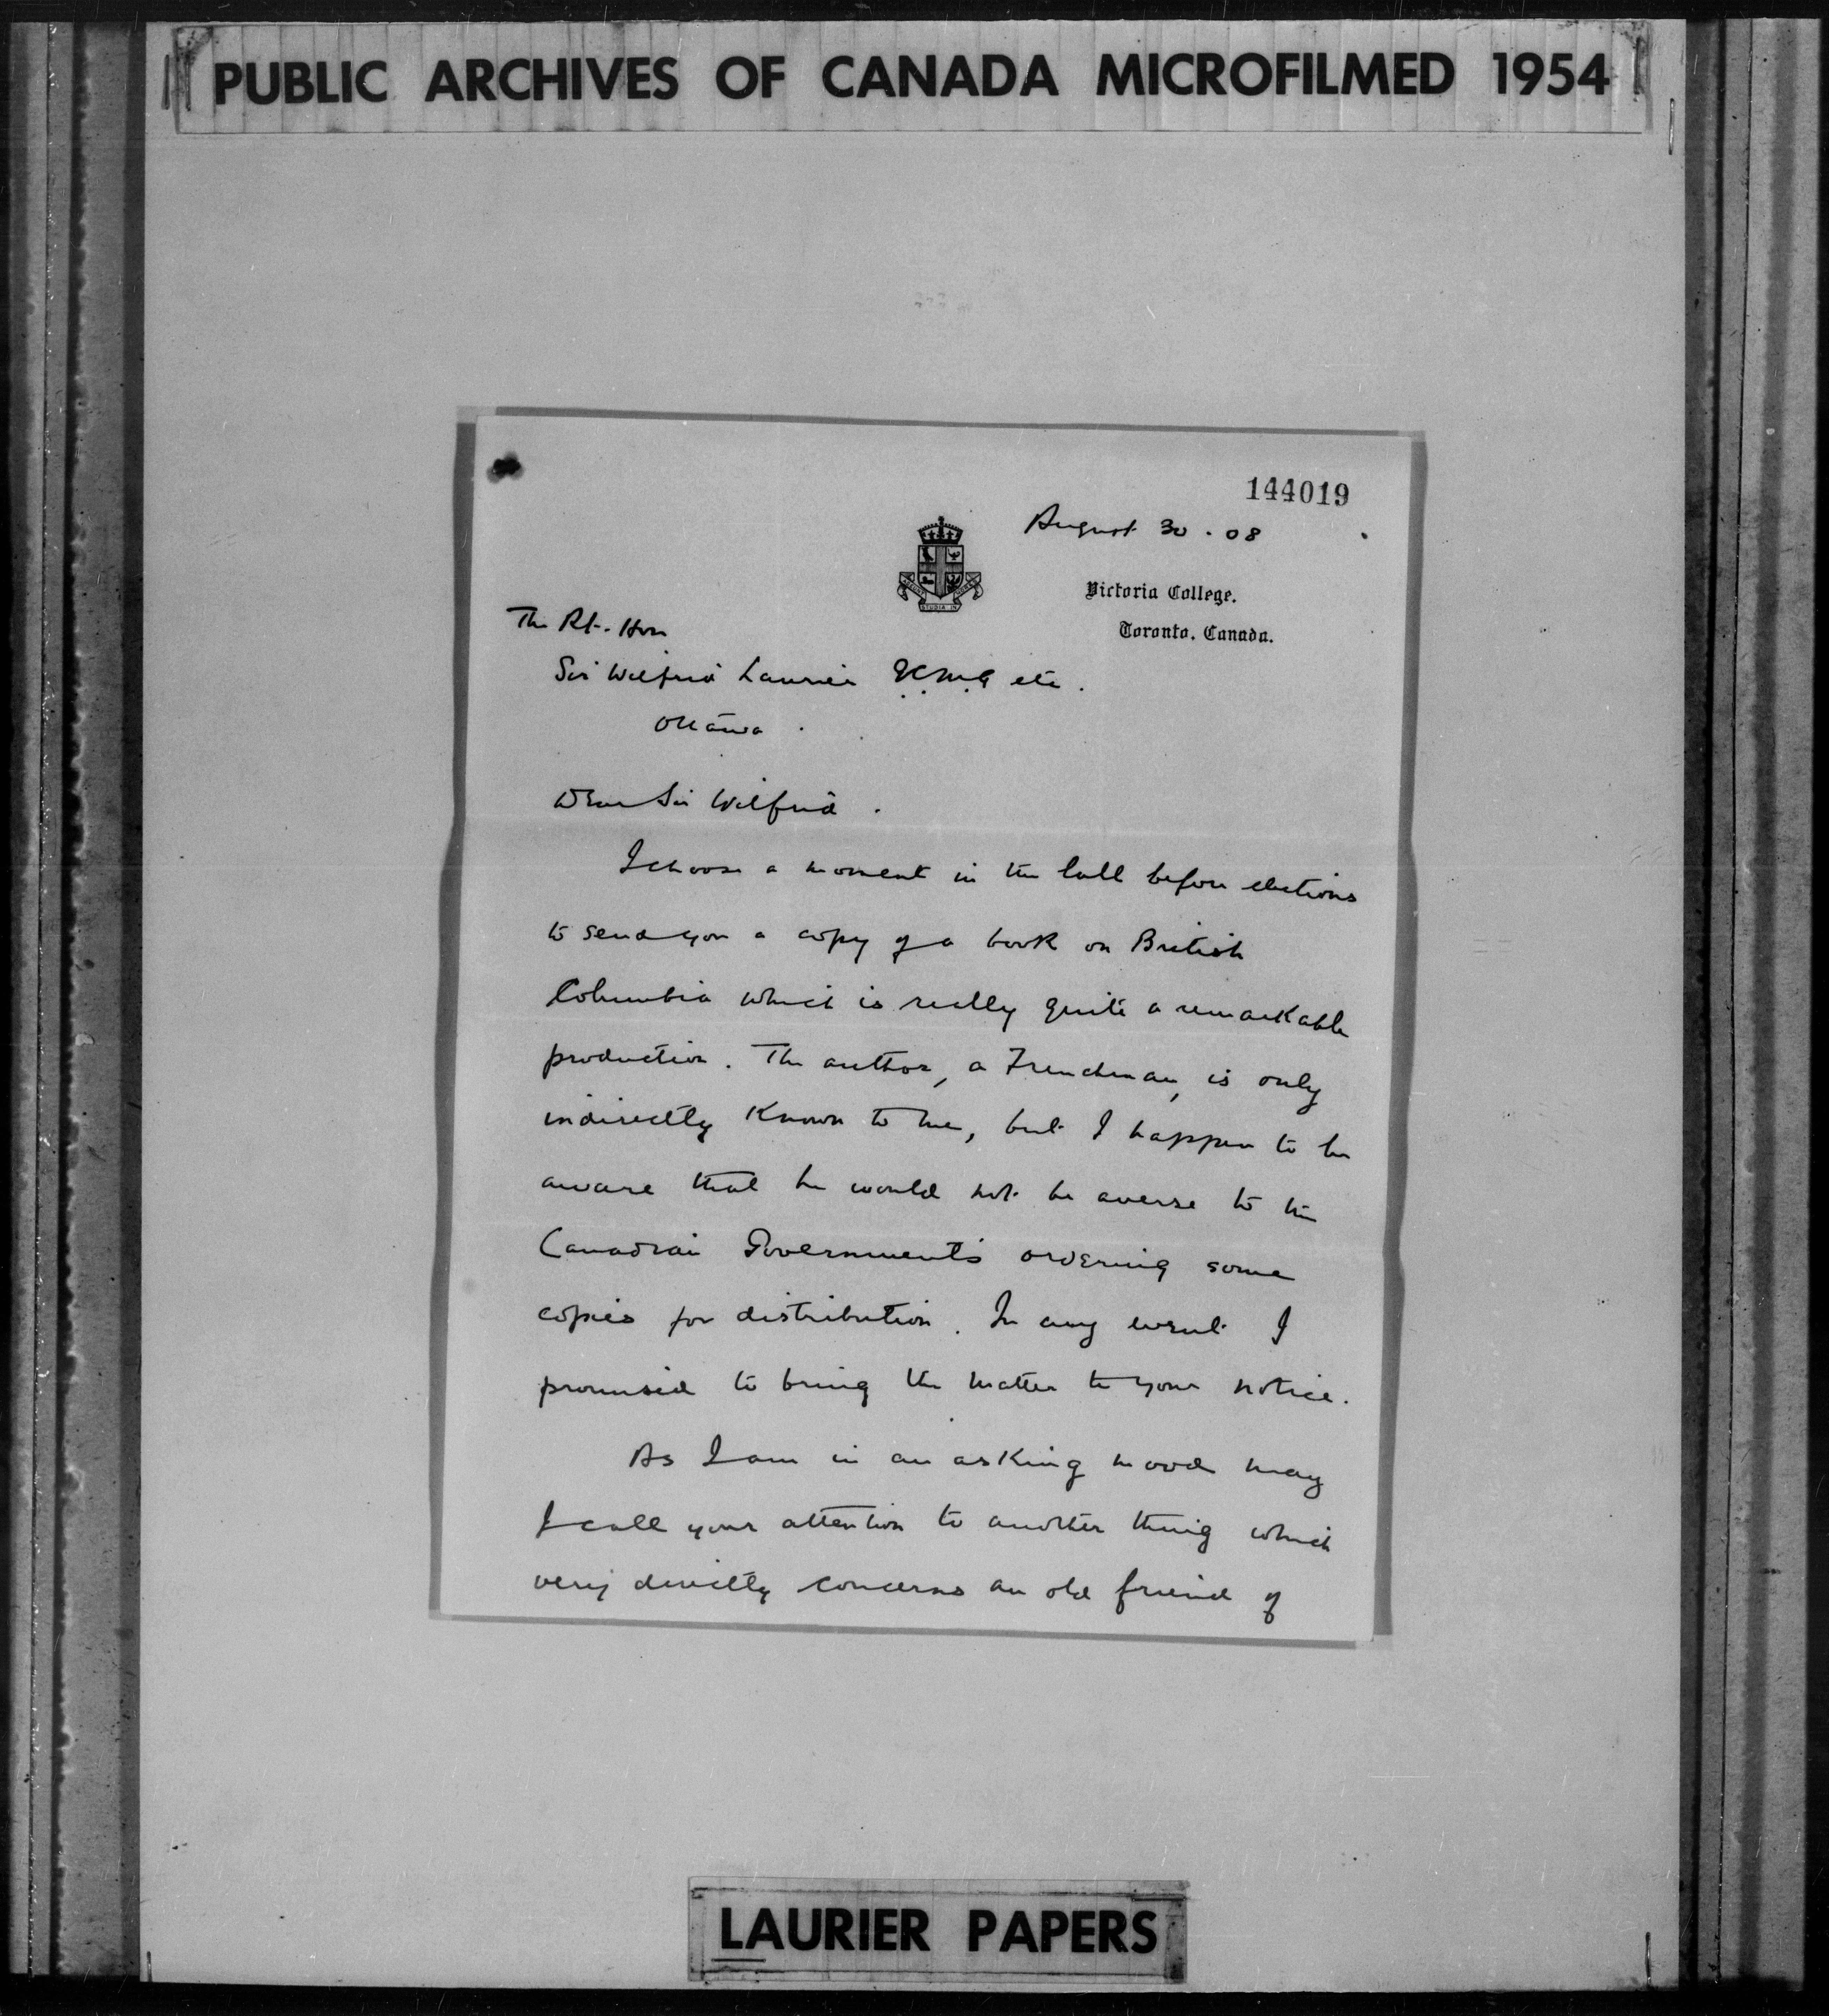 PUBLIC ARCHIVES OF CANADA MICROFILMED 1954
144019
August 30 . 08
STUDIA IN
Victoria College.
Toronto. Canada.
The Rt. Hon
Sir Wilfrid Laurier etc.
Ottawa.
Dear Sir Wilfrid.
I choose a moment in the lull before elections
to send you a copy of a book on British
Columbia which is really quite a remarkable
production. The author, a Frenchman, is only
indirectly known to me, but I happen to be
aware that he would not be averse to the
Canadian Government's ordering some
copies for distribution. In any event I
promised to bring the matter to your notice.
As I am in an asking mood may
I call your attention to another thing which
very directly concerns an old friend of
LAURIER PAPERS